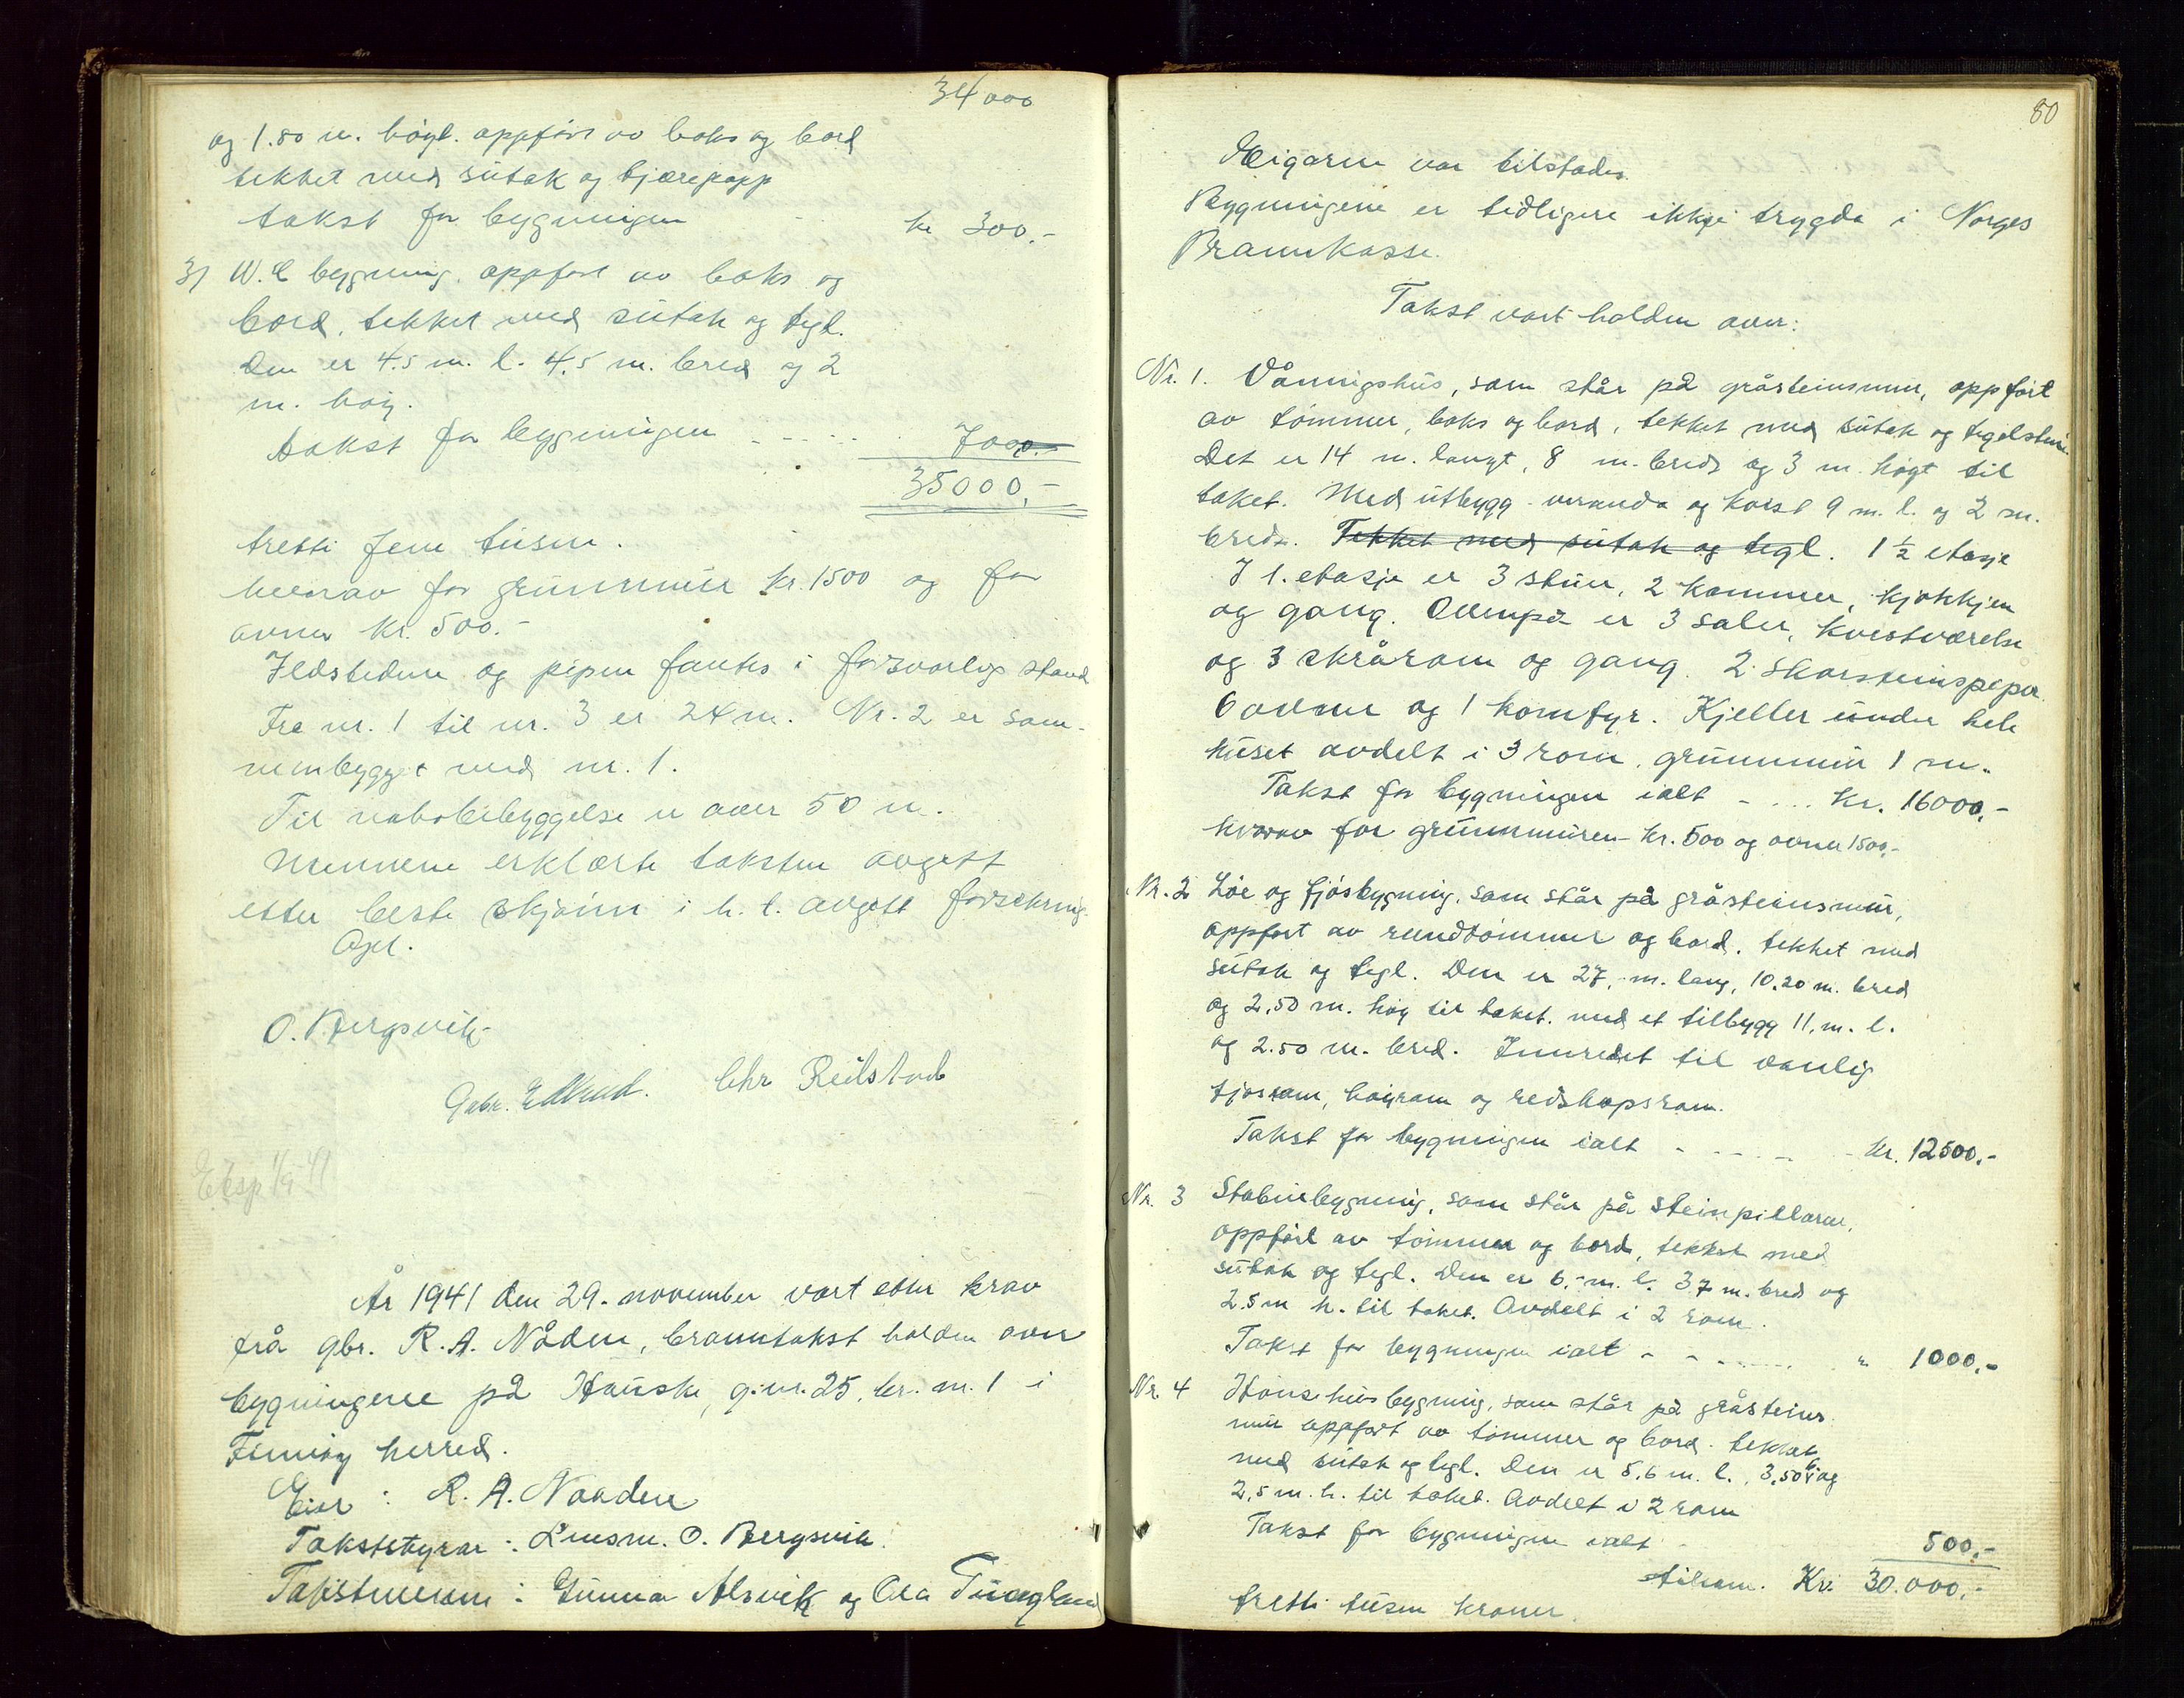 34000
og 1.80 m. högt. oppfört av boks og bord
tekket med sutak og tjærepapp
takst for bygningen - kr 300.-
3) W.C bygning. oppført av boks og
bord. tekket med sutak og tegl.
Den er 4.5 m. l. 4.5 m. bred og 2
m. høy.
takst for bygningen - - - - - 700.-
35000.-
tretti fem tusen.
hvorav for grunnmur kr. 1500 og for
ovner kr. 500.-
Ildstedene og pipen fantes i forsvarlig stand
Fra nr. 1 til nr. 3 er 24 m. Nr. 2 er sam-
menbygget med nr. 1.
Til nabobebyggelse er over 50 m.
Mennene erklærte taksten avgitt
etter beste skjønn i h. t. avgitt forsikring.
Opl.
O. Bergsvik
Gabr. Chr Reilstad
Eksp 1/9 41
År 1941 den 29. november vart etter krav
frå gbr. R. A. Nåden, branntakst halden over
bygningene på Hauske, g.nr. 25, br. nr. 1 i
Finnøy herred.
Eier : R. A. Naaden
Takststyrar : Lensm. O. Bergsvik.
Takstmenn : Gunnar Alsvik og Ola Tungland
80
Eigaren var tilstades.
Bygningene er tidligere ikkje trygda i Norges
Brannkasse.
Takst vart halden over:
Nr. 1. Våningshus, som står på gråsteinsmur, oppført
av tömmer, boks og bord, tekket med sutak og teglstein.
Det er 14 m. langt, 8 m. bredt og 3 m. høgt til
taket. Med utbygg - veranda og kvist 9 m. l. og 2 m.
bred. Tekket med sutak og tegl. 1 ½ etasje
I 1. etasje er 3 stuer, 2 kammer, kjøkkjen
og gang. Ovenpå er 3 saler, kvistværelse
og 3 skrårom og gang. 2 skorsteinspiper
6 ovner og 1 komfyr. Kjeller under hele
huset avdelt i 3 rom, grunnmur 1 m.
Takst for bygningen ialt - ... Kr. 16000.-
hvorav for grunnmuren kr. 500 og ovner 1500.-
Nr. 2 Löe og fjösbygning, som står på gråsteinsmur,
oppført av rundtömmer og bord, tekket med
sutak og tegl. Den er 27,- m. lang, 10.20 m. bred
og 2.50 m. høg til taket. med et tilbygg 11. m. l.
og 2.50 m. bred. Innredet til vanlig
fjosrom, høyrom og redskapsrom.
Takst for bygningen ialt - - - - - - kr. 12500.-
Nr. 3 Stabursbygning, som står på steinpillarer,
oppført av tömmer og bord, tekket med
sutak og tegl. Den er 6.- m. l. 3,7 m. bred og
2.5 m h. til taket. Avdelt i 2 rom.
Takst for bygningen ialt - - - - - " 1000.-
Nr. 4 Hönsehusbygning, som står på gråsteins
mur oppført av tömmer og bord. tekket
med sutak og tegl. Den er 5,6 m. l., 3,50 b. og
2,5 m. h. til taket. Avdelt i 2 rom
Takst for bygningen ialt - 500.-
tilsam. Kr: 30.000.-
tretti tusen kroner.